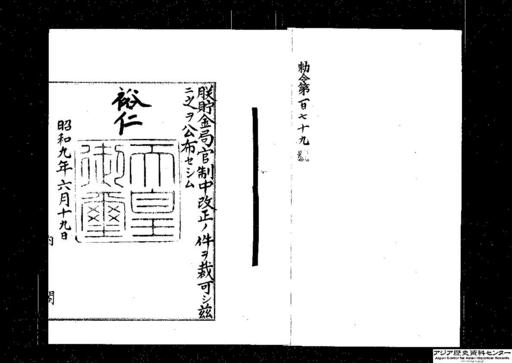 勅令第一百七十九号
朕貯金局官制中改正ノ件ヲ裁可シ茲
ニ之ヲ公布セシム
裕仁
天皇
御璽
昭和九年六月十九日
内閣
アジア歴史資料センター
Japan Center for Asian Historical Records